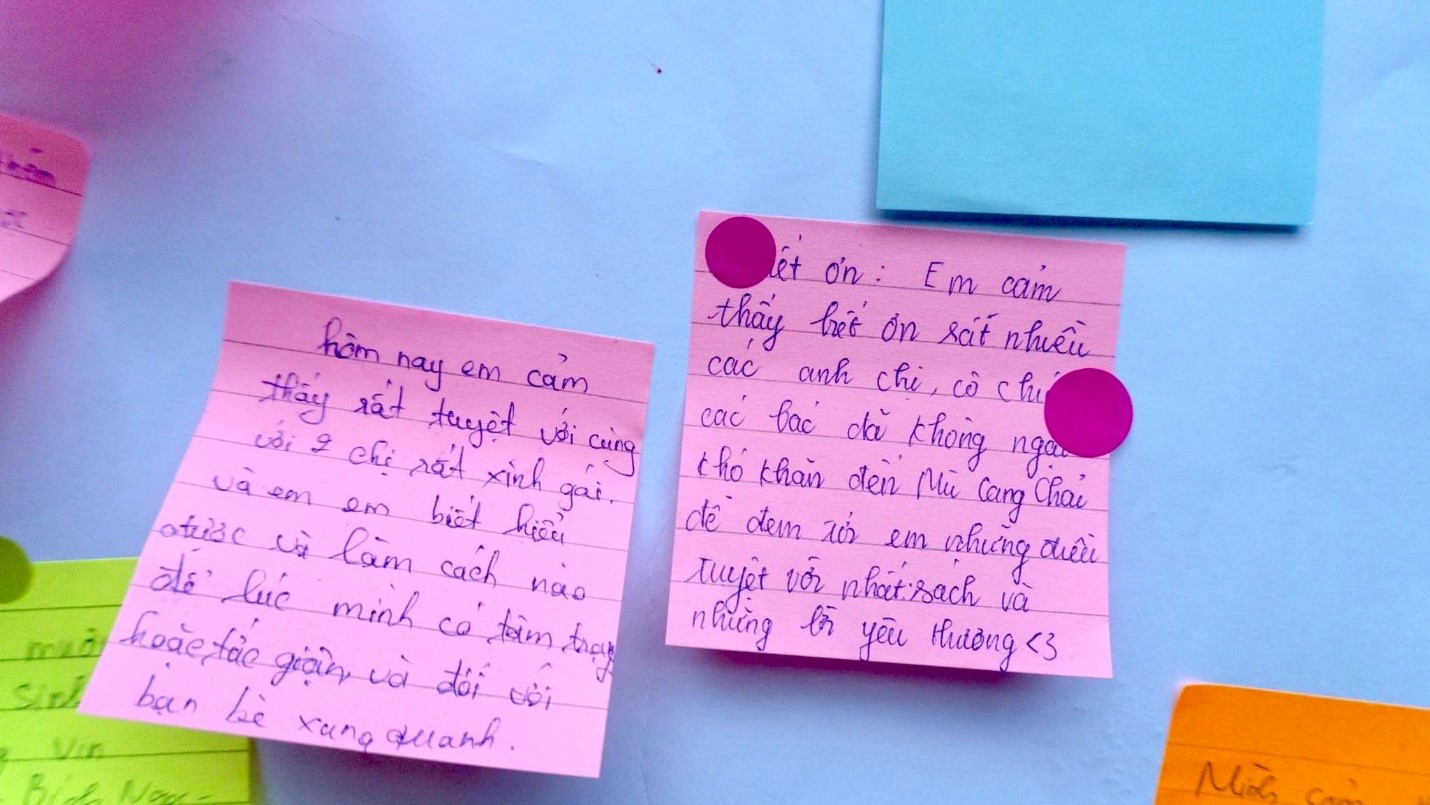 hôm nay em cảm
thấy rất tuyệt vời cùng
với 2 chị rất xinh gái.
và em em biết hiểu
được và làm cách nào
để lúc mình có tâm trạng
hoặc tức giận và đối với
bạn bè xung quanh.
ơn: Em cảm
thấy biết ơn rất nhiều
các anh chị, cô
các bác đã không
khó khăn đến Mù Cang Chải
để đem tới em những điều
tuyệt vời nhất: sách và
những lời yêu thương <3
Vin
Bích
Mình